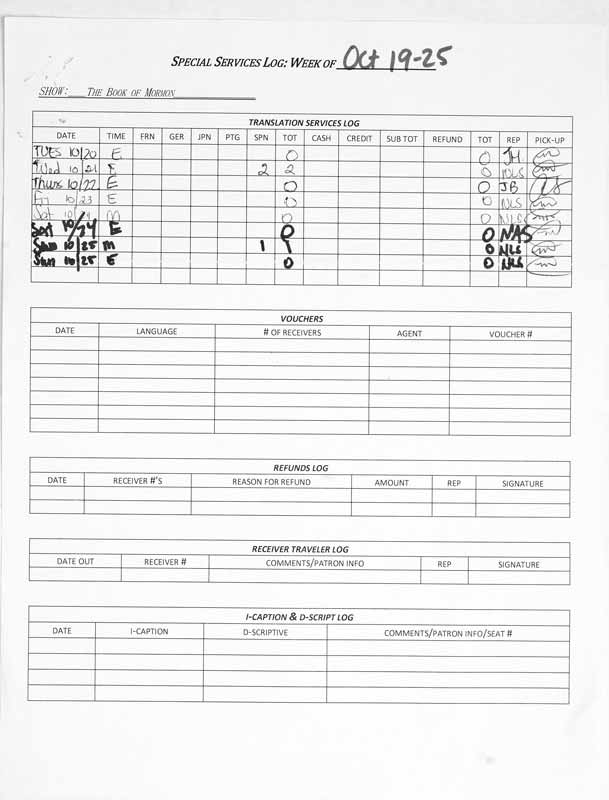 SPECIAL SERVICES LOG: WEEK OF Oct 19-25
SHOW: THE BOOK OF MORMON
TRANSLATION SERVICES LOG
DATE TIME FRN GER JPN PTG SPN TOT CASH CREDIT SUB TOT REFUND TOT REP PICK-UP
TUES 10/20 E 0 0 JH
Wed 10/21 E 2 2 0 NLS
Thurs 10/22 E 0 0 JB
Fri 10/23 E 0 0 NLS
Sat 10/24 M 0 0 NLS
Sat 10/24 E 0 0 NAS
Sun 10/25 M 1 1 0 NLS
Sun 10/25 E 0 0 NLS
VOUCHERS
DATE LANGUAGE # OF RECEIVERS AGENT VOUCHER #
REFUNDS LOG
DATE RECEIVER #'S REASON FOR REFUND AMOUNT REP SIGNATURE
RECEIVER TRAVELER LOG
DATE OUT RECEIVER # COMMENTS/PATRON INFO REP SIGNATURE
I-CAPTION & D-SCRIPT LOG
DATE I-CAPTION D-SCRIPTIVE COMMENTS/PATRON INFO/SEAT #